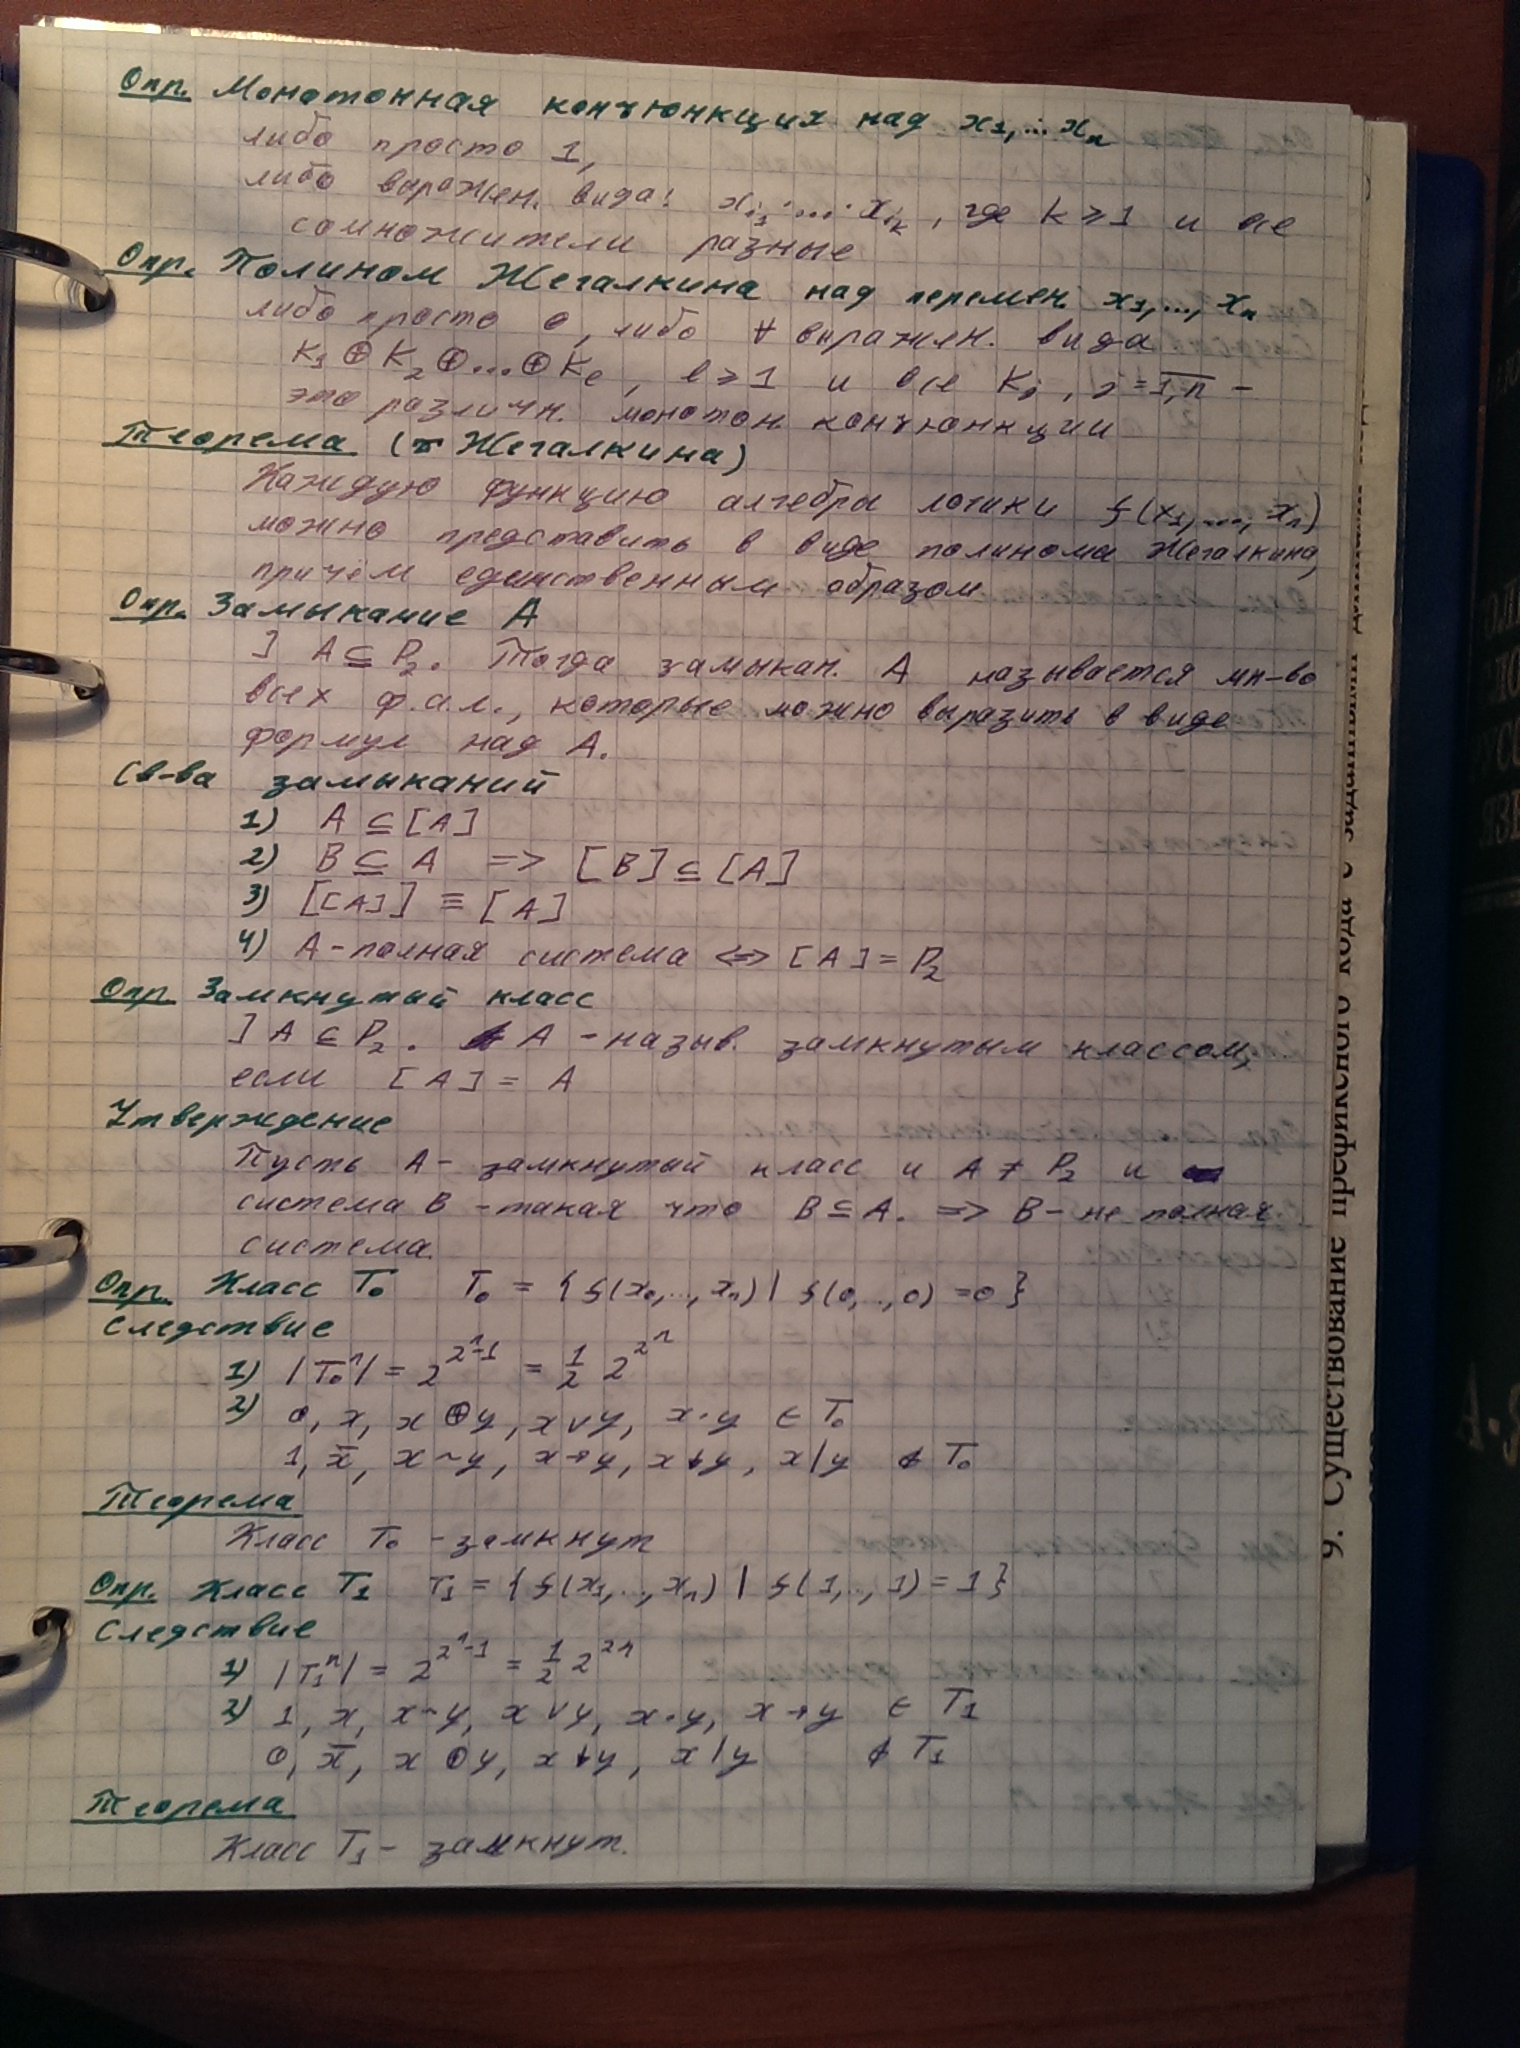 Опр. Монотонная конъюнкция над x₁,...xₙ
либо просто 1,
либо выражен. вида: xᵢ₁·...·xᵢₖ, где k ≥ 1 и все
сомножители разные
Опр. Полином Жегалкина над перемен. x₁,..., xₙ
либо просто 0, либо ∀ выражен. вида
K₁ ⊕ K₂ ⊕...⊕ Kₑ, l ≥ 1 и все Kⱼ, j = 1,n –
это различн. монотон. конъюнкции
Теорема (Жегалкина)
Каждую функцию алгебры логики f(x₁,..., xₙ)
можно представить в виде полинома Жегалкина,
причём единственным образом
Опр. Замыкание A
] A ⊆ P₂. Тогда замыкан. A называется мн-во
всех ф.а.л., которые можно выразить в виде
формул над A.
Св-ва замыканий
1) A ⊆ [A]
2) B ⊆ A => [B] ⊆ [A]
3) [[A]] ≡ [A]
4) A – полная система <=> [A] = P₂
Опр Замкнутый класс
] A ⊆ P₂. A – назыв. замкнутым классом,
если [A] = A
Утверждение
Пусть A – замкнутый класс и A ≠ P₂ и
система B – такая что B ⊆ A. => B – не полная
система.
Опр. Класс T₀ T₀ = {f(x₀,..., xₙ) | f(0,..,0) = 0}
Следствие
1) |T₀ⁿ| = 2^{2ⁿ-1} = 1/2 2^{2ⁿ}
2) 0, x, x ⊕ y, x ∨ y, x·y ∈ T₀
1, x̄, x ~ y, x → y, x ↓ y, x | y ∉ T₀
Теорема
Класс T₀ – замкнут
Опр. Класс T₁ T₁ = {f(x₁,.., xₙ) | f(1,.., 1) = 1}
Следствие
1) |T₁ⁿ| = 2^{2ⁿ-1} = 1/2 2^{2n}
2) 1, x, x ~ y, x ∨ y, x·y, x → y ∈ T₁
0, x̄, x ⊕ y, x ↓ y, x | y ∉ T₁
Теорема
Класс T₁ – замкнут.
9. Существование префиксного кода с заданными длинами